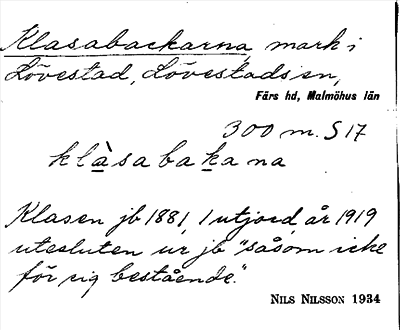 Klasabackarna, mark i
Lövestad, Lövestads sn,
Färs hd, Malmöhus län
300 m. S 17
klàsabakana
Klasen jb 1881, 1 utjord, år 1919
utesluten ur jb "såsom icke
för sig bestående".
NILS NILSSON 1934